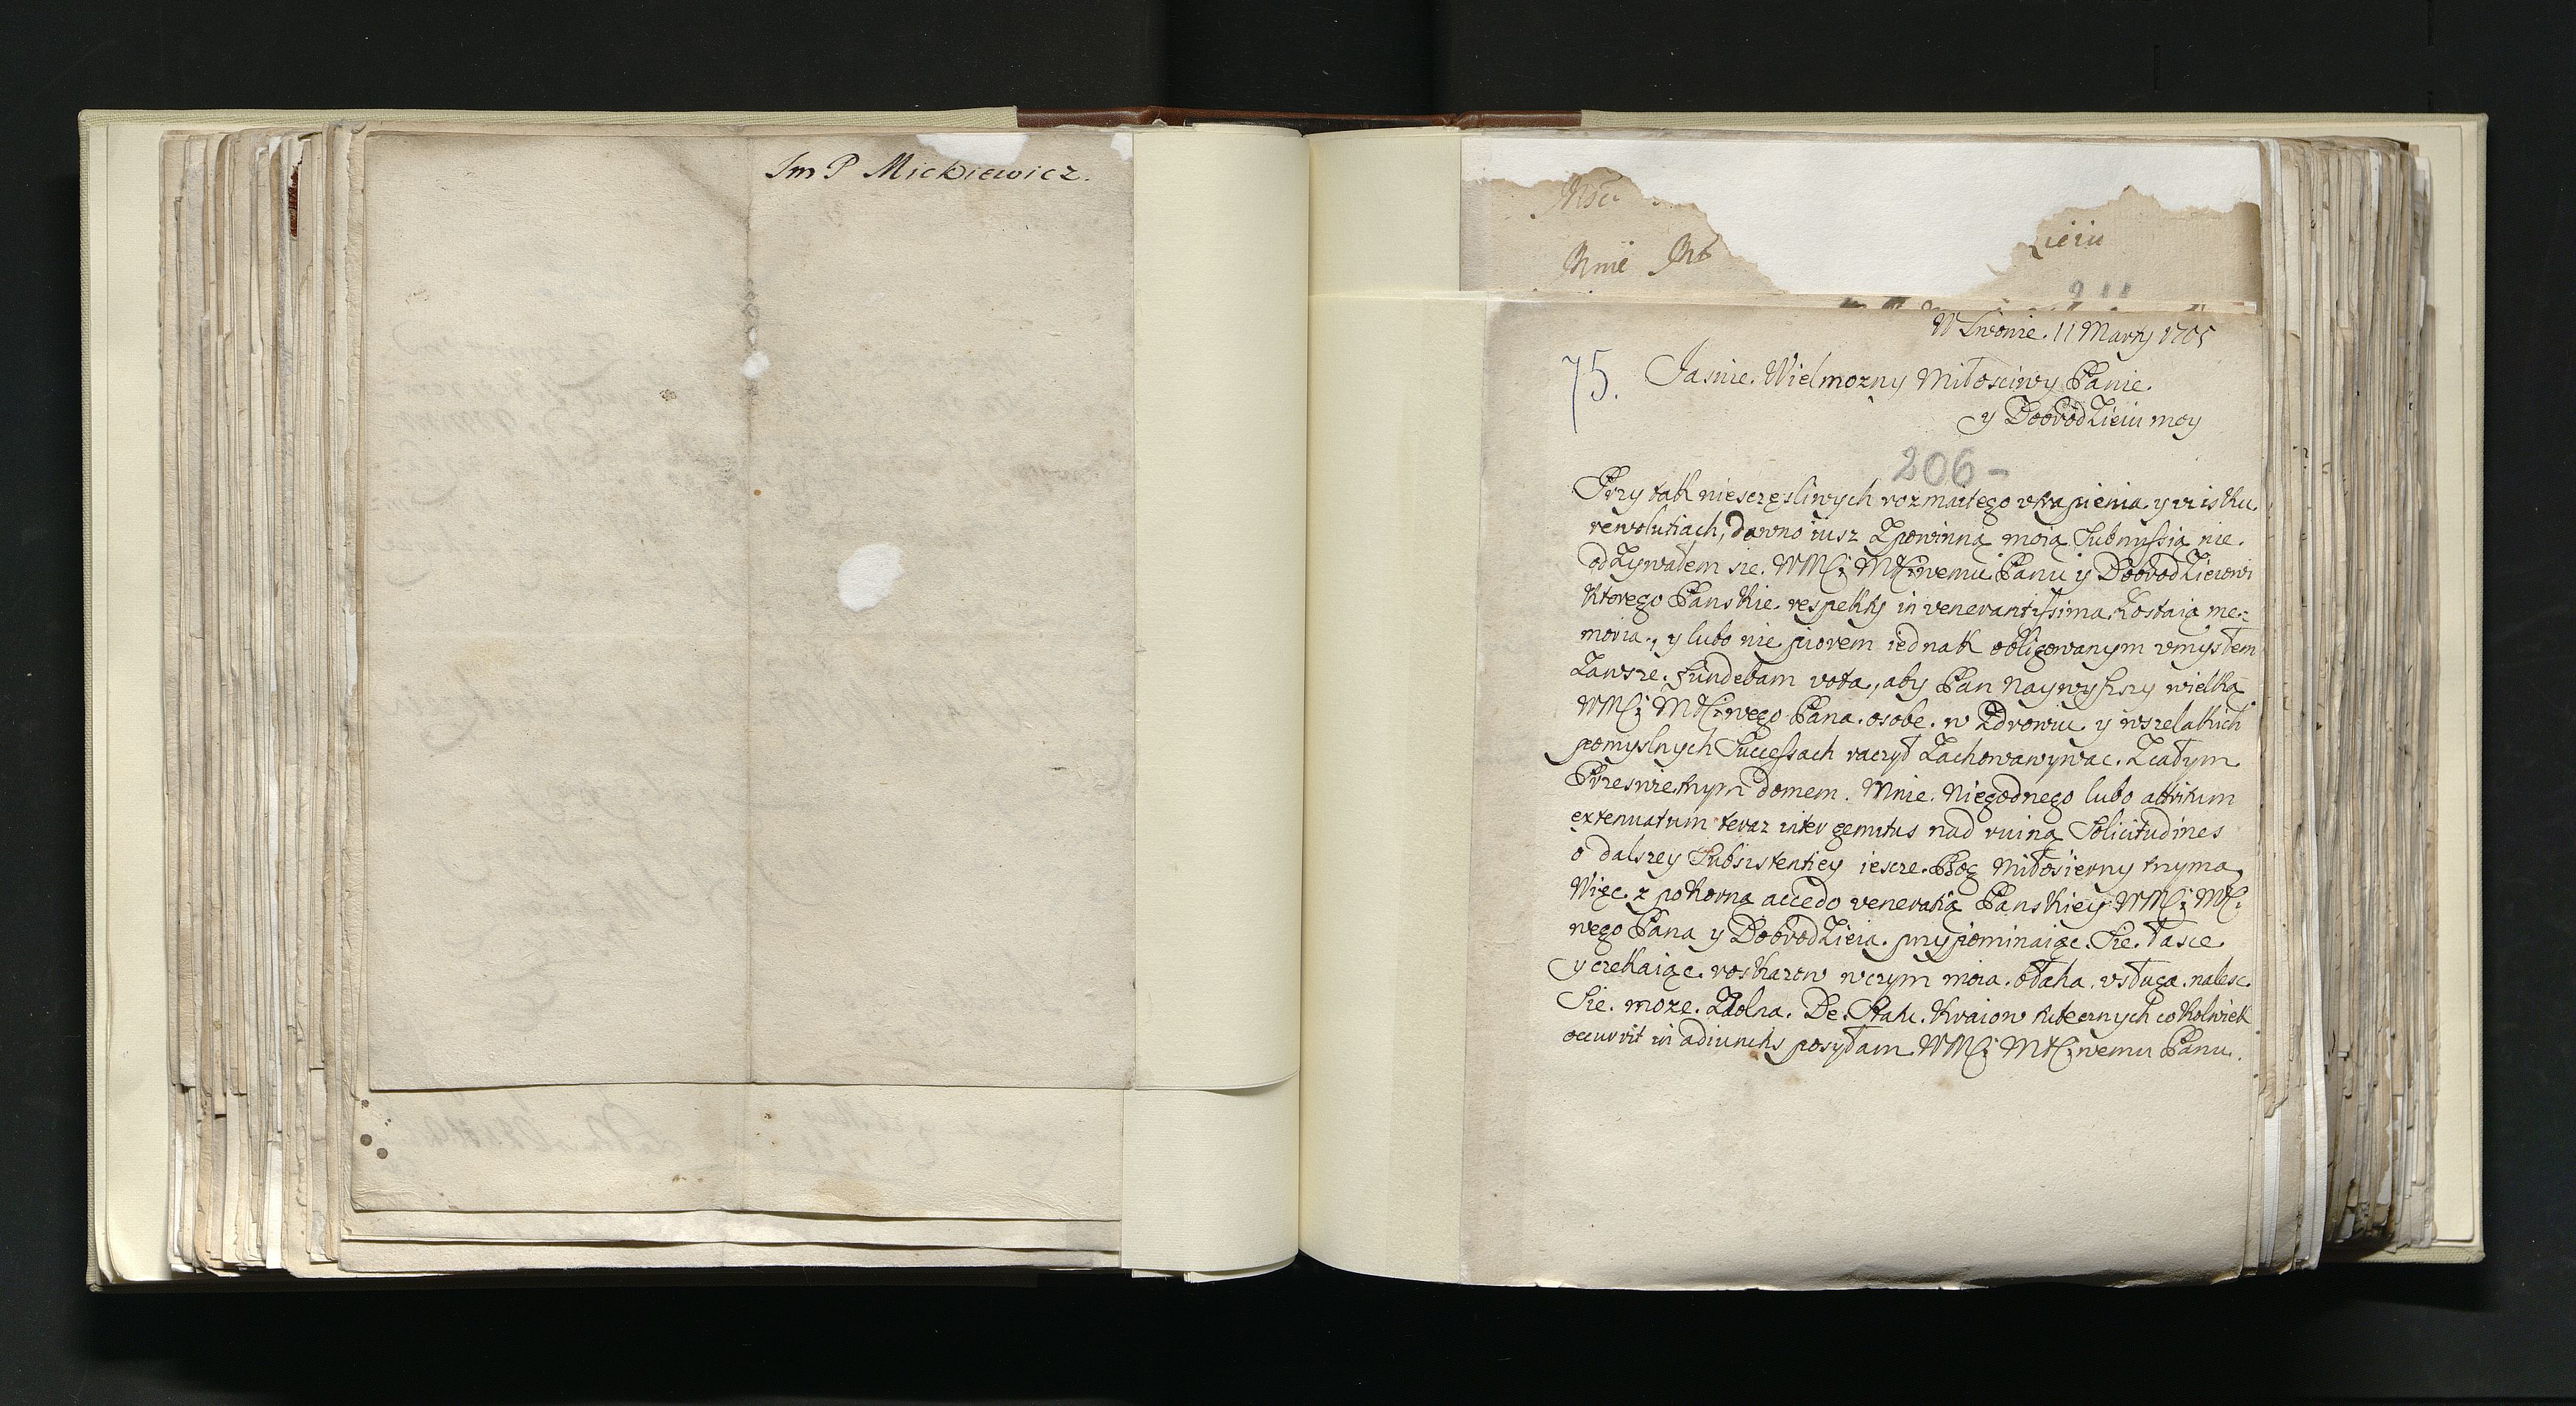 Im P Mickiewicz.
Msci
Mnie
ieiu
W Lwowie. 11 Marty 1705
75. Jasnie. Wielmozny Miłosciwy Panie.
y Dobrodzieiu moy
206 -
Przy tak niesczęsliwych rozmaitego vtrapienia y vcisku
rewolutiach, dawno iusz z powinną moią Submyssią nie.
odzywałem sie. WMCi MCiwemu Panu y Dobrodzieiowi
ktorego Panskie. respekty in venerantissima. zostaią me=
moria., y lubo nie piorem iednak obligowanym vmysłem
zawsze. fundebam vota, aby Pan Naywyszszy wielką
WMCi MCiwego Pana. osobę. w zdrowiu y wszelakich
pomyslnych Successach raczył zachowawywac. z całym
Przeswietnym domem. Mnie. niegodnego lubo attritum
extenuatum teraz inter gemitus nad ruiną Solicitudines
o dalszey Subsistentiey iescze. Bog Miłosierny trzyma,
Więc. z pokorną accedo veneratią Panskiey WMCi MCi
wego Pana y Dobrodzieia. przypominaiąc. Sie. łasce.
y czekaiąc. roskazow w czym moia. błaha. vsługa. nalesc.
Sie. moze. zdolna. De. Statu. Kraiow tutecznych cokolwiek
occurrit in adiunctis posyłam. WMCi MCiwemu Panu.